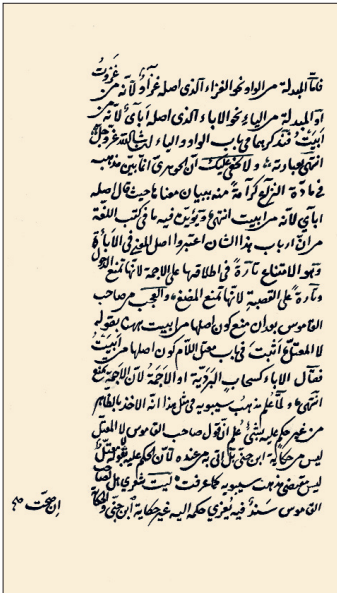 فاما المبدلة من الواو نحو العزاء الذى اصله عزاو لانه من عزوت
او المبدلة من الياء نحو الاباء الذى اصله اباى لانه من
ابيت فنذكرهما فى باب الواو والياء ان شاء الله عز وجل
انتهى بعبارته ولا يخفى عليك ان الجوهرى انما بين مذهبه
فى مادة كرامة منه ببيان معناها حيث قال اصله
اباى لانه من ابيت انتهى ويؤيده ما فى كتب اللغة
من ان ارباب هذا الشان اعتبروا اصل المعنى فى الاباءة
وهو الامتناع تارة فى اطلاقها على الاجمة لانها تمنع
وتارة على القصبة لانها تمنع والعجب من صاحب
القاموس بعد ان منع كون اصلها من ابيت ههنا بقوله
لا المعتل اثبت فى باب معتل اللام كون اصلها من ابيت
فقال الاباء كسحاب البردية او الاجمة لان الاجمة تمنع
انتهى ولما علم مذهب سيبويه فى مثل هذا انه الاخذ بالظاهر
من غير حكم عليه بشئ علم ان قول صاحب القاموس لا المعتل
ليس من حكاية ابن جنى بل من عنده لان الحكم عليه
ليس مقتضى مذهب سيبويه كما عرفت ليت شعرى هل لصاحب
القاموس سند فيه يعزى حكمه اليه غير حكاية ابن جنى
ان صحت